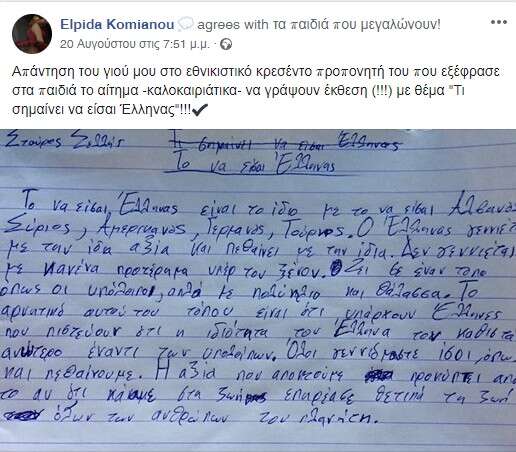 Elpida Komianou 💭 agrees with τα παιδιά που μεγαλώνουν!
20 Αυγούστου στις 7:51 μ.μ. ·
Απάντηση του γιού μου στο εθνικιστικό κρεσέντο προπονητή του που εξέφρασε
στα παιδιά το αίτημα -καλοκαιριάτικα- να γράψουν έκθεση (!!!) με θέμα "Τι
σημαίνει να είσαι Έλληνας"!!!✔
Σταύρος
Τι σημαίνει να είσαι Έλληνας
Το να είσαι Έλληνας
Το να είσαι Έλληνας είναι το ίδιο με το να είσαι Αλβανός
Σύριος, Αμερικανός, Γερμανός, Τούρκος. Ο Έλληνας γεννιέται
με την ίδια αξία και πεθαίνει με την ίδια. Δεν γεννιέται
με κανένα προτέρημα υπέρ του ξένου. Ζει σε έναν τόπο
όπως οι υπόλοιποι, απλά με πολύ ήλιο και θάλασσα. Το
αρνητικό αυτού του τόπου είναι ότι υπάρχουν Έλληνες
που πιστεύουν ότι η ιδιότητα του Έλληνα τον καθιστά
ανώτερο έναντι των υπολοίπων. Όλοι γεννιόμαστε ίσοι, όπως
και πεθαίνουμε. Η αξία που αποκτούμε προκύπτει από
το αν ότι κάναμε στα ζωή επηρέασε θετικά τα ζωή
όλων των ανθρώπων του πλανήτη.